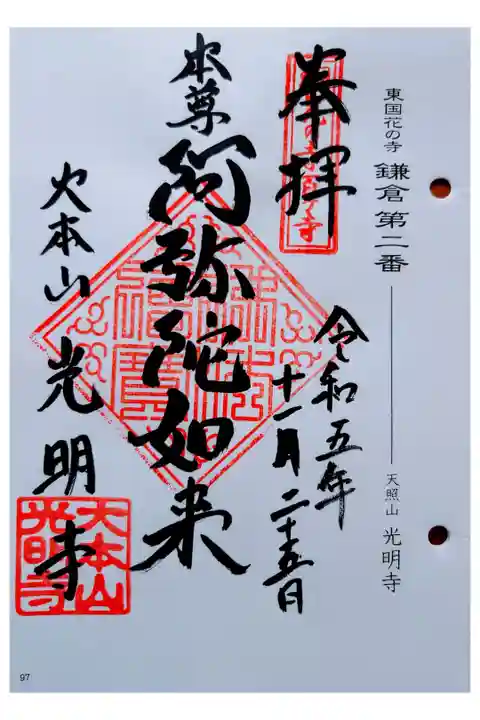 東国花の寺 鎌倉第二番 天照山 光明寺
奉拝
令和五年
十一月二十五日
本尊
阿弥陀如来
大本山 光明寺
大本山
光明寺
97